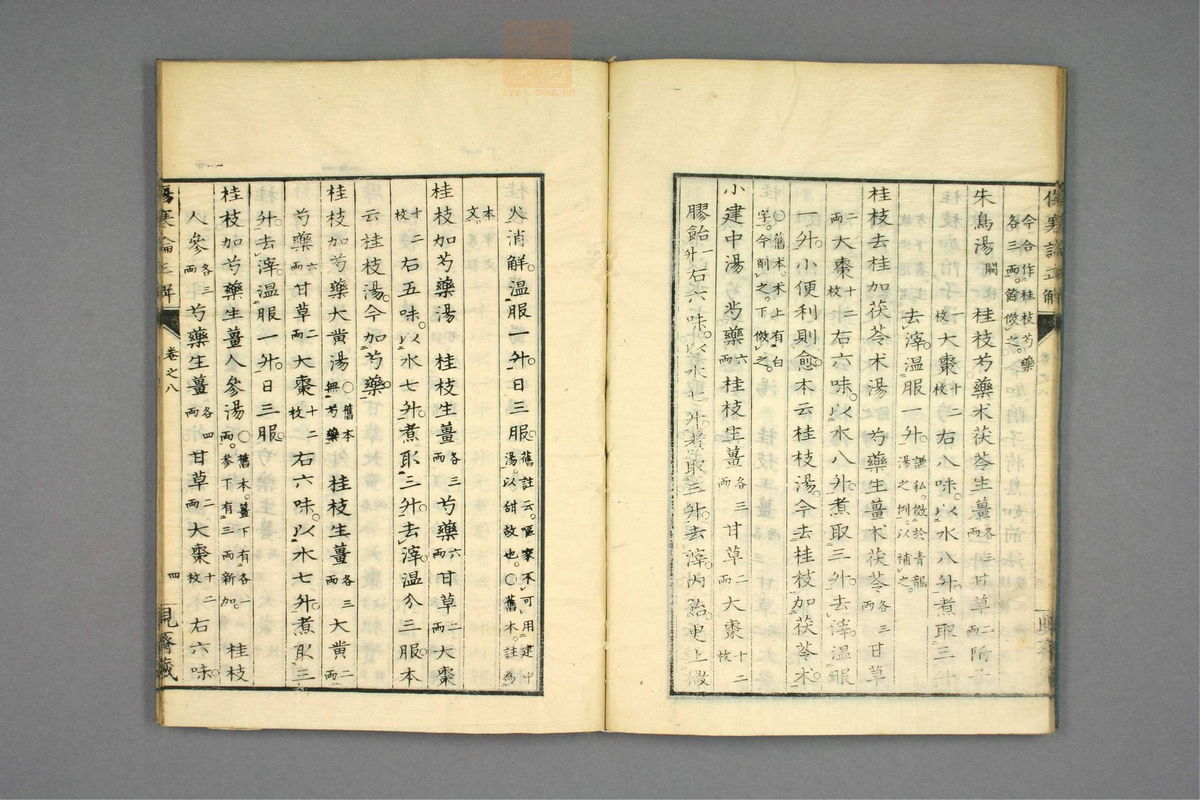 今合作桂枝芍藥
各三兩餘倣之
朱鳥湯 闕 桂枝芍藥朮茯苓生薑各三兩甘草二兩附子
一枚大棗十二枚右八味以水八升煮取三升
去滓温服一升謙私倣於青龍湯之例以補之
桂枝去桂加茯苓朮湯 芍藥生薑朮茯苓各三兩甘草
二兩大棗十二枚右六味以水八升煮取三升去滓温服
一升小便利則愈本云桂枝湯今去桂枝加茯苓朮
○舊本朮上有白字今削之下倣之
小建中湯 芍藥六兩桂枝生薑各三兩甘草二兩大棗十二枚
膠飴一升右六味以水七升煮取三升去滓内飴更上微
火消解温服一升日三服舊註云嘔家不可用建中湯以甜故也○舊本註為
本文
桂枝加芍藥湯 桂枝生薑各三兩芍藥六兩甘草二兩大棗
十二枚右五味以水七升煮取三升去滓温分三服本
云桂枝湯今加芍藥
桂枝加芍藥大黄湯○舊本無芍藥 桂枝生薑各三兩大黄二兩
芍藥六兩甘草二兩大棗十二枚右六味以水七升煮取三
升去滓温服一升日三服
桂枝加芍藥生薑人參湯○舊本薑下有各一兩參下有三兩新加 桂枝
人參各三兩芍藥生薑各四兩甘草二兩大棗十二枚右六味
卷之八
四